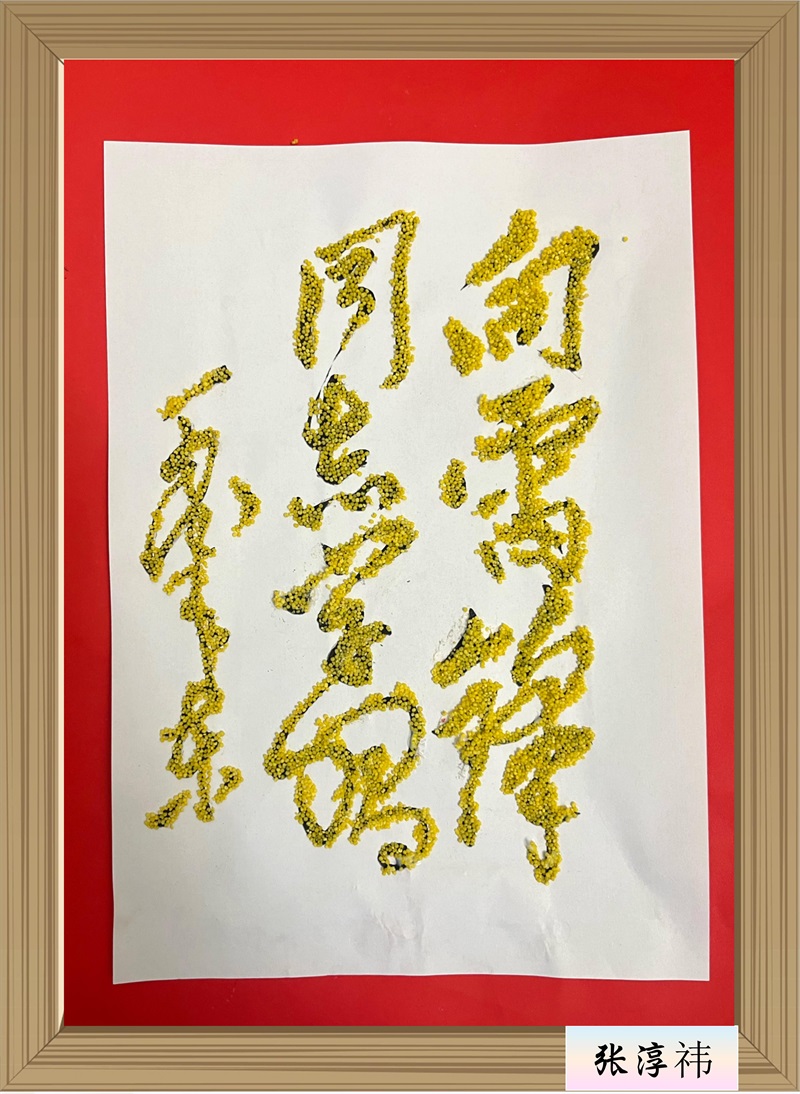 向雷锋
同志学习
毛泽东
张淳祎